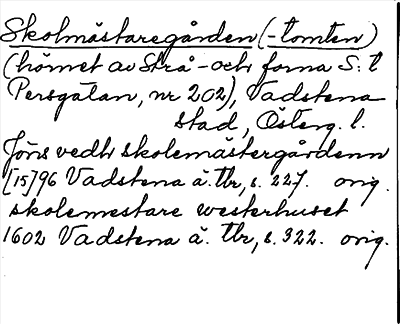 Skolmästaregården (-tomten)
(hörnet av Strå- och forna S:t
Persgatan, nr 202), Vadstena
stad, Österg. l.
Jöns vedh skolemästergårdenn
[15]96 Vadstena ä. Tbr, s. 227. orig.
skolemestare westerhuset
1602 Vadstena ä. Tbr, s. 322. orig.